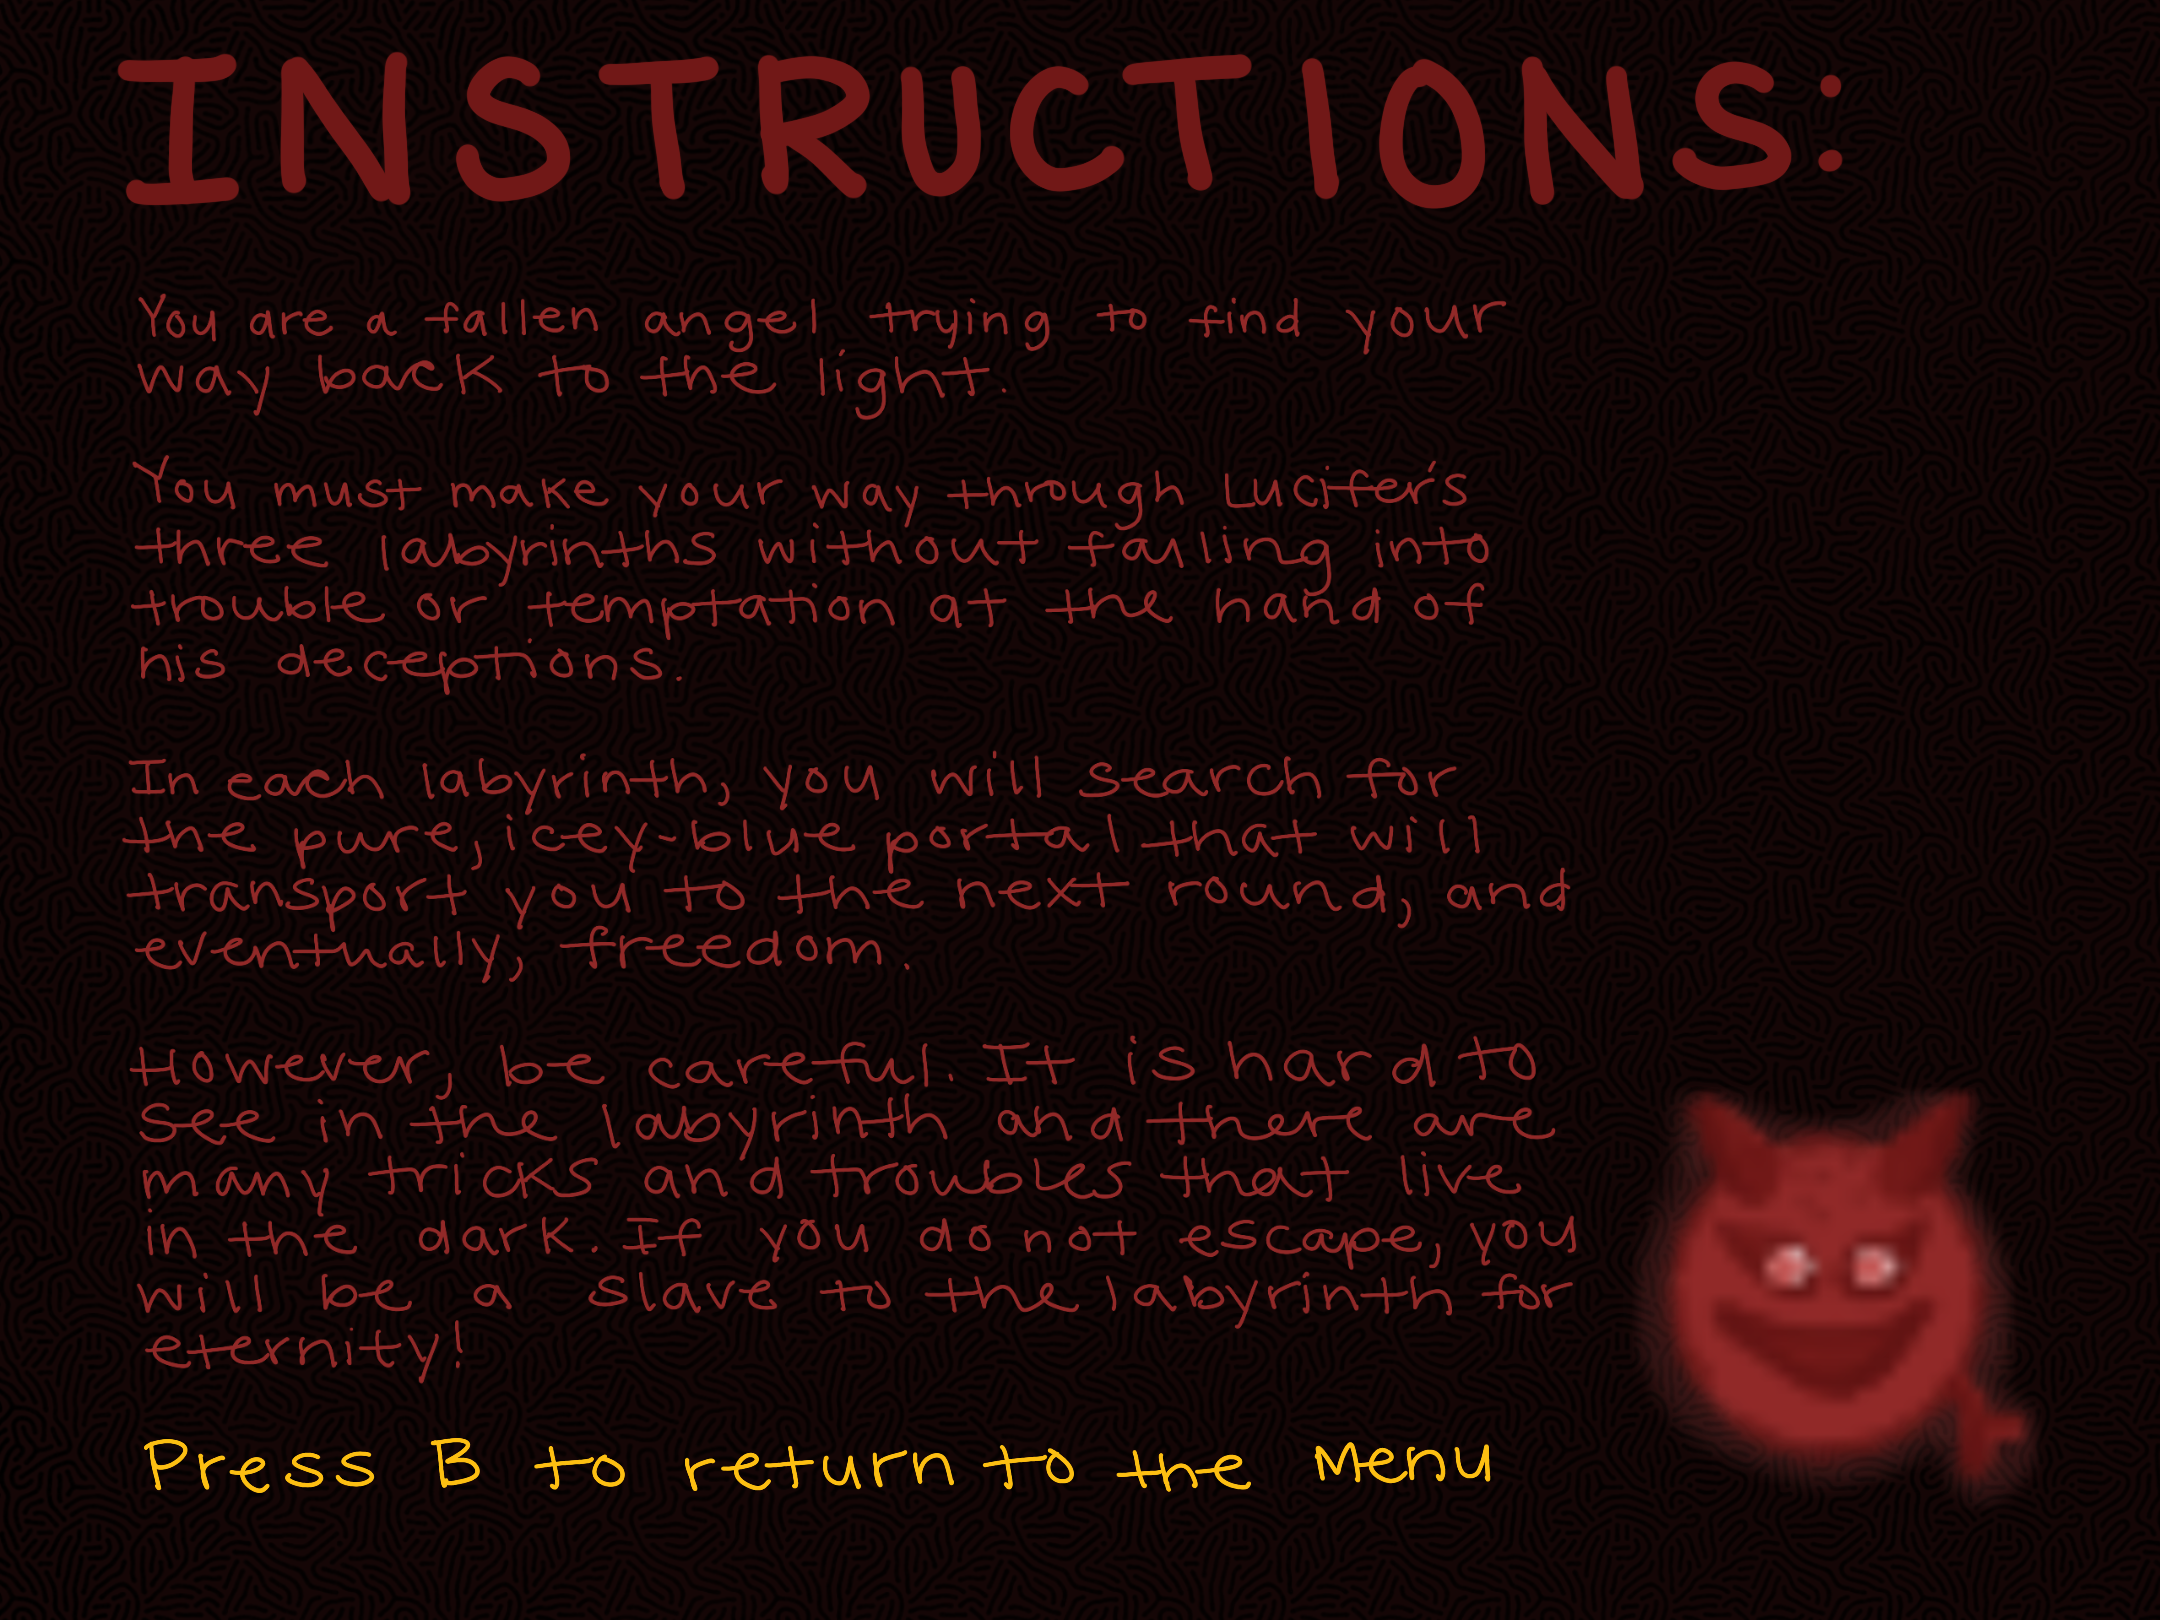 INSTRUCTIONS:
You are a fallen angel trying to find your
way back to the light.
You must make your way through Lucifer's
three labyrinths without falling into
trouble or temptation at the hand of
his deceptions.
In each labyrinth, you will search for
the pure, icey-blue portal that will
transport you to the next round, and
eventually, freedom.
However, be careful. It is hard to
see in the labyrinth and there are
many tricks and troubles that live
in the dark. If you do not escape, you
will be a slave to the labyrinth for
eternity!
Press B to return to the Menu